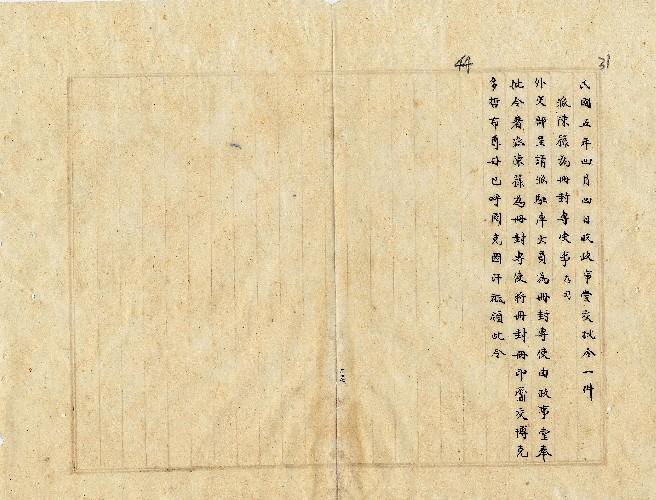 31
44
民國五年四月四日收政事堂交批令一件
派陳籙為冊封專使事
外交部呈請派駐庫大員為冊封專使由政事堂奉
批令著派陳籙為冊封專使將冊封冊印齎交博克
多哲布尊丹巴呼圖克圖汗祗領此令